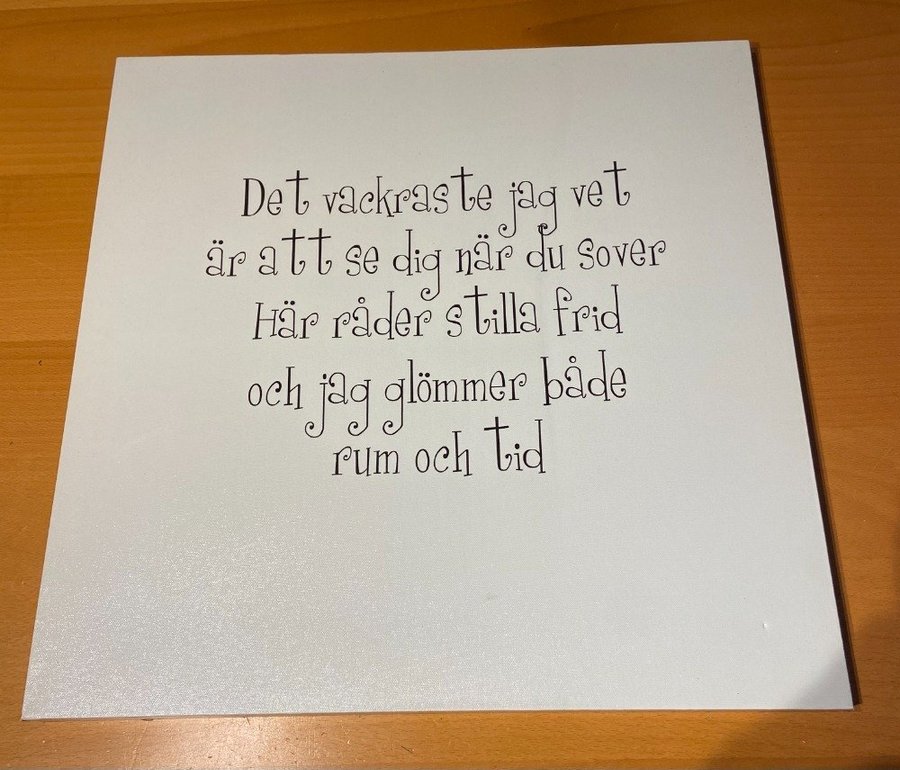 Det vackraste jag vet
är att se dig när du sover
Här råder stilla frid
och jag glömmer både
rum och tid